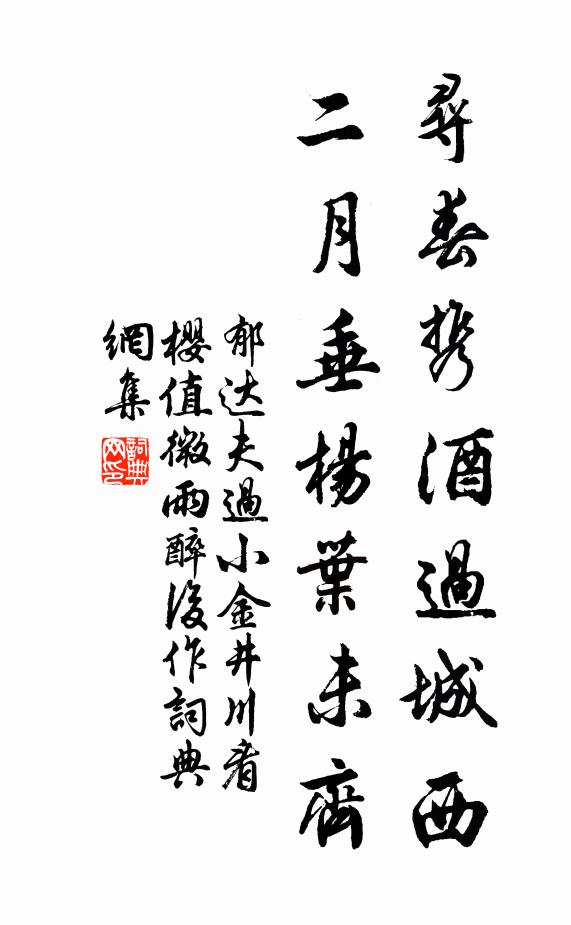 尋春携酒過城西
二月垂楊葉未齊
郁达夫過小金井川看
櫻值微雨醉後作詞典
網集
詞典
网印